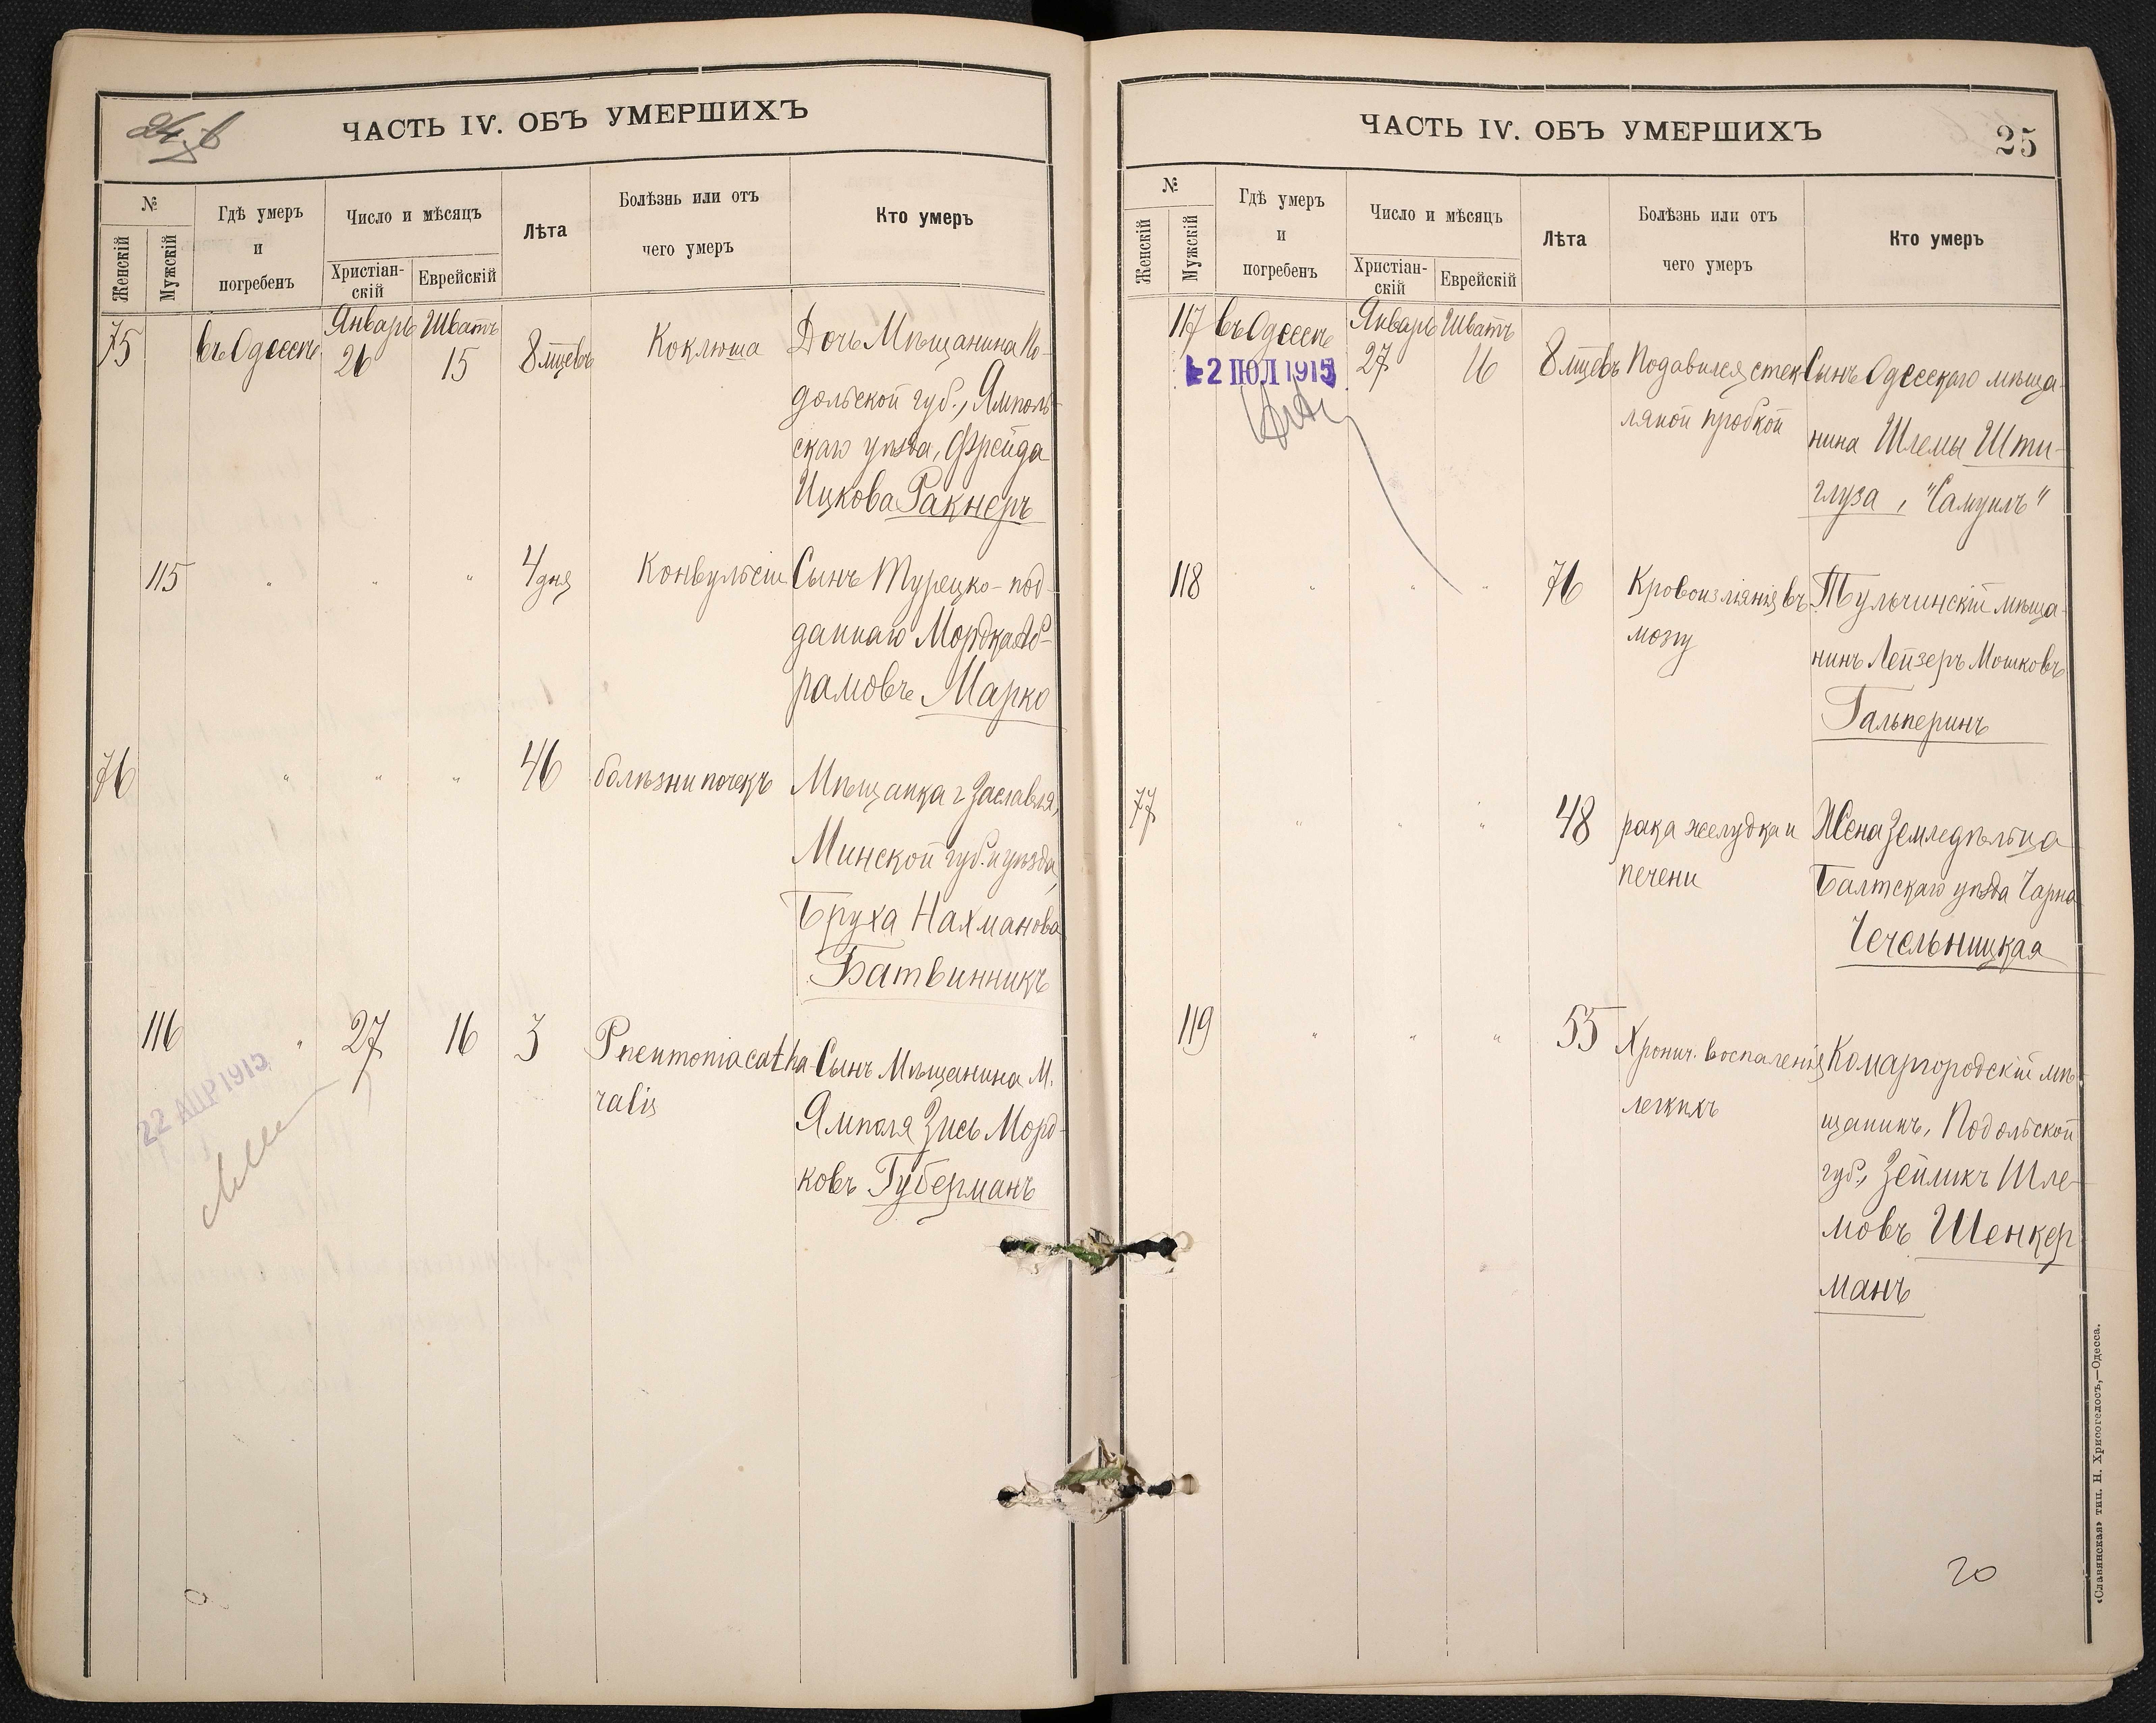 24 об
ЧАСТЬ IV. ОБЪ УМЕРШИХЪ
№
Женскій
Мужскій
Гдѣ умеръ
и
погребенъ
Число и мѣсяцъ
Христіан-
скій
Еврейскій
Лѣта
Болѣзнь или отъ
чего умеръ
Кто умеръ
75
въ Одессѣ
Январь
26
Шватъ
15
8 мцевъ
Коклюша
Дочь Мѣщанина По-
дольской губ., Ямполь-
скаго уѣзда, Фрейда
Ицкова Ракнеръ
115
"
"
"
4 дня
Конвульсіи
Сынъ Турецко-под-
даннаго Мордка Аб-
рамовъ Марко
76
"
"
"
46
болѣзни почекъ
Мѣщанка г. Заславля,
Минской губ. и уѣзда,
Бруха Нахманова
Батвинникъ
116
"
27
16
3
Pneumonia catha-
ralis
Сынъ Мѣщанина М.
Ямполя Зись Морд-
ковъ Губерманъ
22 АПР 1915
ЧАСТЬ IV. ОБЪ УМЕРШИХЪ
25
№
Женскій
Мужскій
Гдѣ умеръ
и
погребенъ
Число и мѣсяцъ
Христіан-
скій
Еврейскій
Лѣта
Болѣзнь или отъ
чего умеръ
Кто умеръ
117
въ Одессѣ
-2 ІЮЛ 1915
Январь
27
Шватъ
16
8 мцевъ
Подавился стек-
ляной пробкой
Сынъ Одесскаго мѣща-
нина Шлемы Шти-
глуза, "Самуилъ"
118
"
"
"
76
Кровоизліянія въ
мозгу
Тульчинскій мѣща-
нинъ Лейзеръ Мошковъ
Гальперинъ
77
"
"
"
48
рака желудка и
печени
Жена Земледѣльца
Балтскаго уѣзда Чарна
Чечельницкая
119
"
"
"
55
Хронич. воспаленія
легкихъ
Комаргородскій мѣ-
щанинъ, Подольской
губ., Зейликъ Шле-
мовъ Шенкер
манъ
20
«Славянская» тип. Н. Хрисогелосъ,—Одесса.